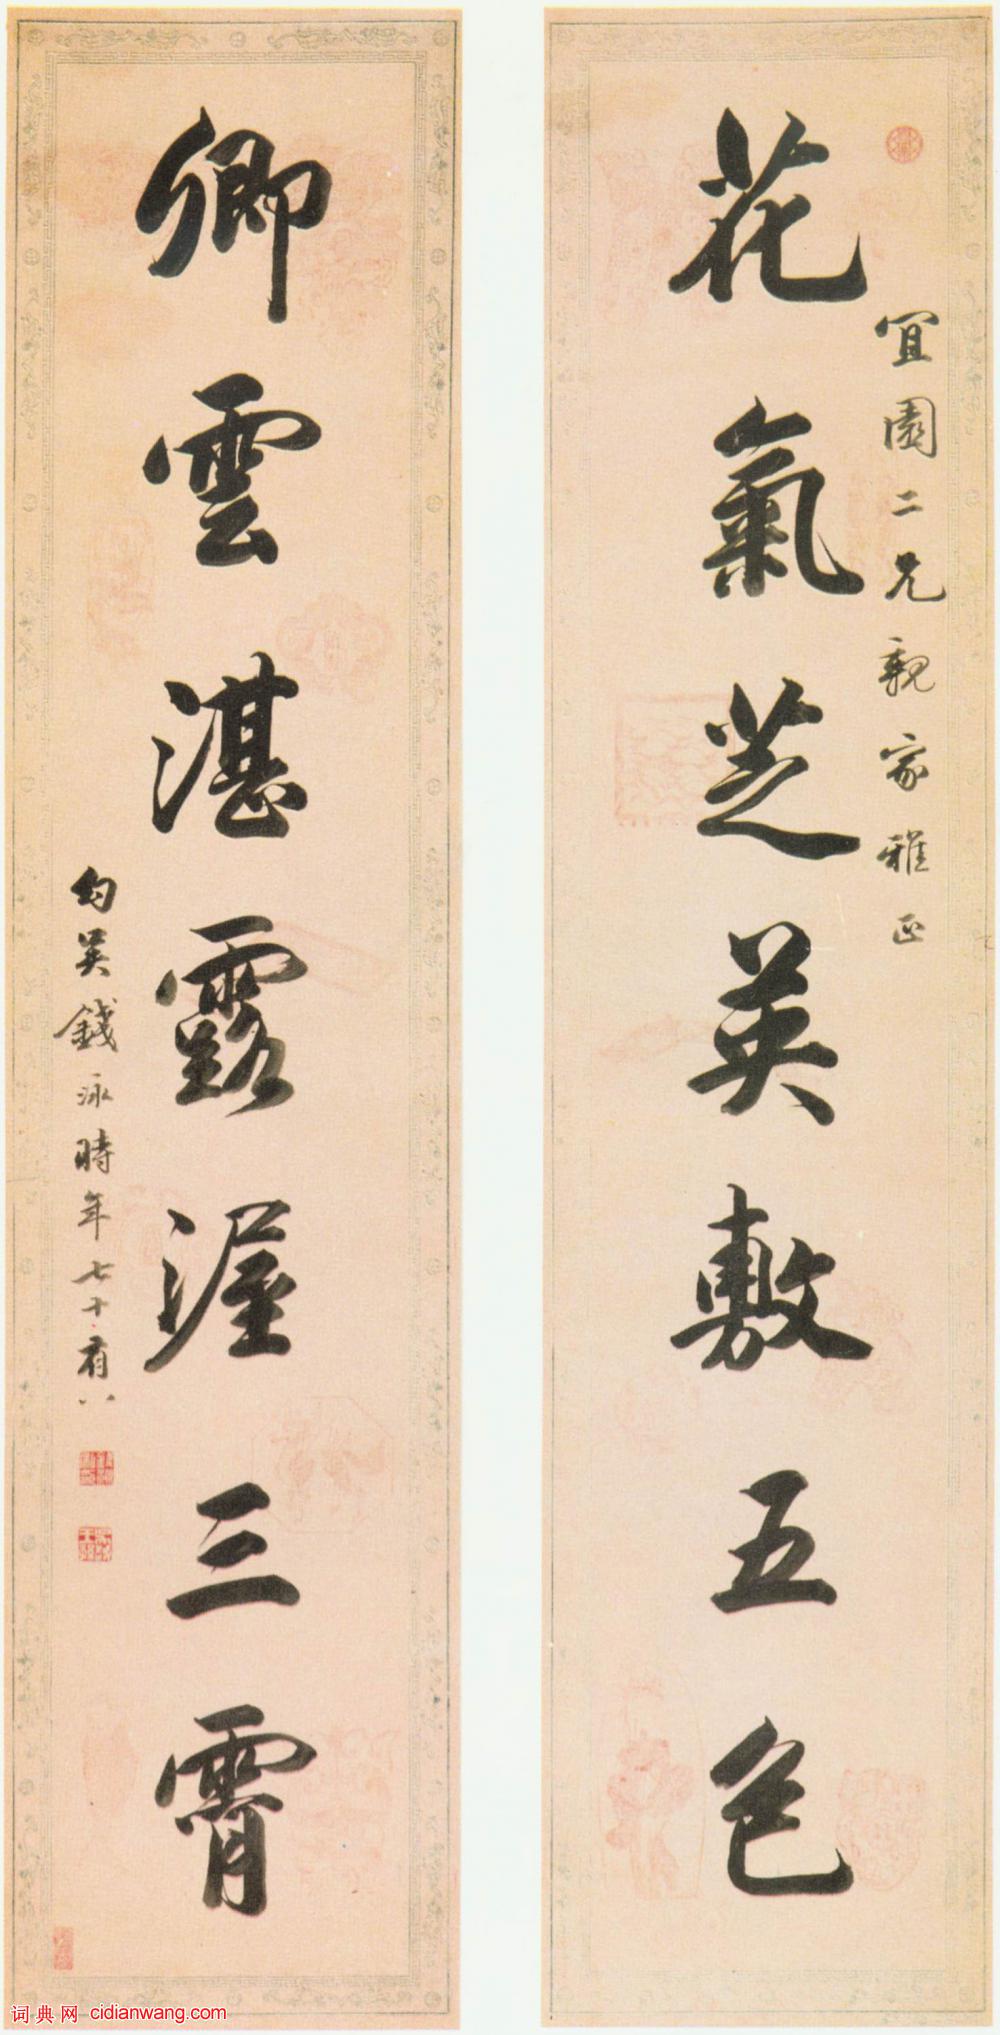 宜園二兄親家雅正
花氣芝英敷五色
卿雲湛露渥三霄
句吳錢泳時年七十有八
词典网 cidianwang.com